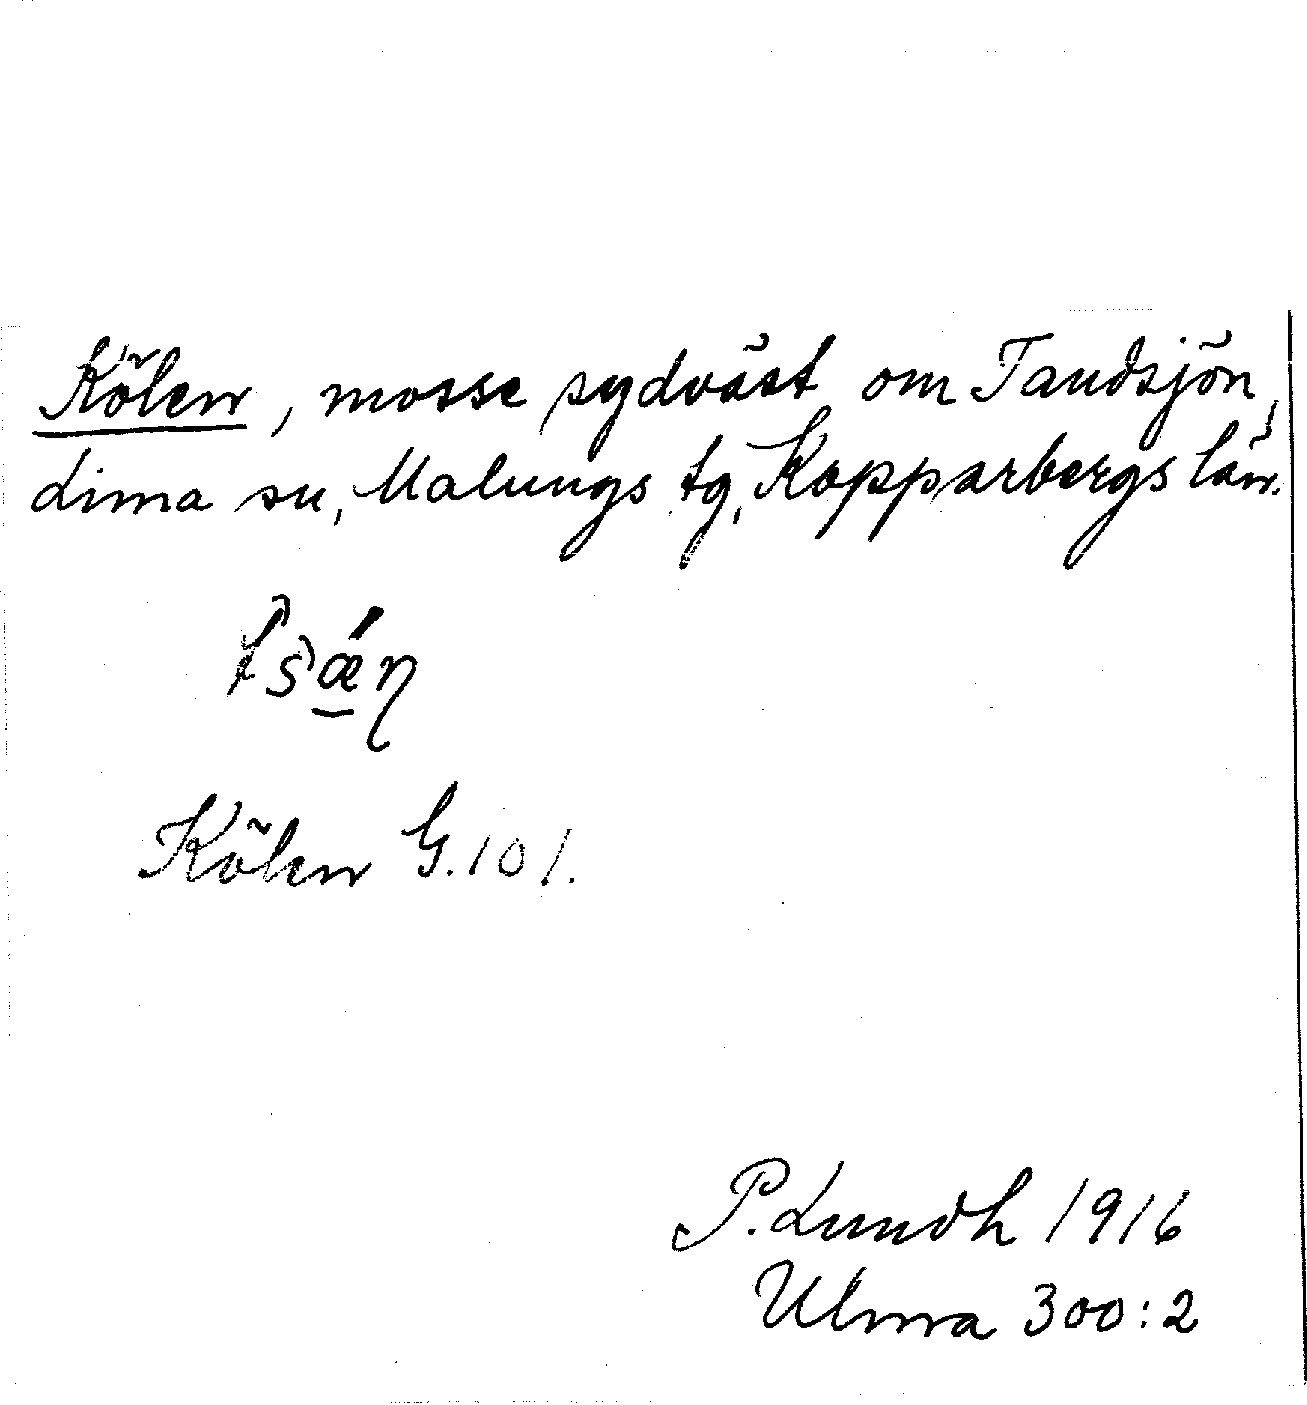 Kölen, mosse sydväst om Tandsjön,
Lima sn, Malungs tg, Kopparbergs län.
Kölen G.101.
P. Lundh 1916
Ulma 300:2